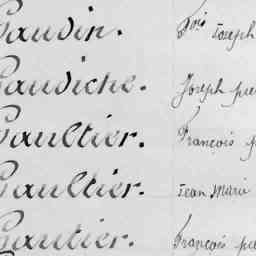 Gaudin. Fois Joseph
Gaudiche. Joseph
Gaultier. François
Gaultier. Jean Marie
Gautier. François